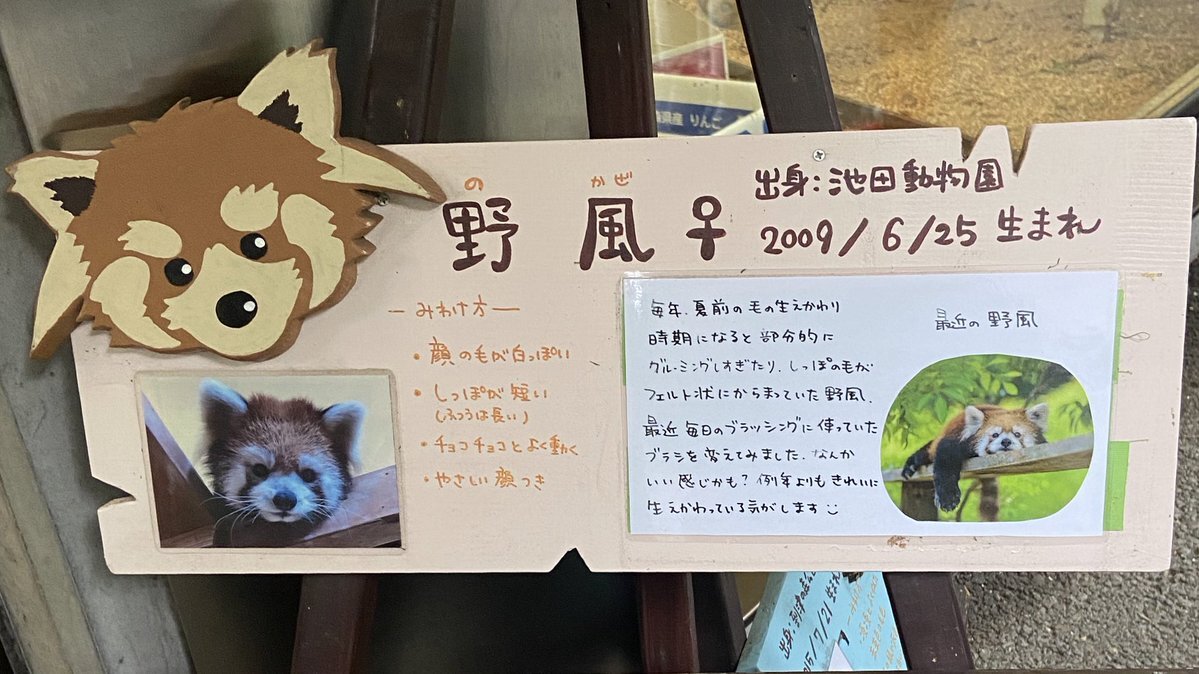 の かぜ
野風♀
出身:池田動物園
2009/6/25 生まれ
ーみわけ方ー
・顔の毛が白っぽい
・しっぽが短い
(ふつうは長い)
・チョコチョコとよく動く
・やさしい顔つき
毎年、夏前の毛の生えかわり
時期になると部分的に
グルーミングしすぎたり、しっぽの毛が
フェルト状にからまっていた野風、
最近毎日のブラッシングに使っていた
ブラシを変えてみました、なんか
いい感じかも?例年よりもきれいに
生えかわっている気がします
最近の野風
県産 りんご
出身:
15/7/21 生まれ